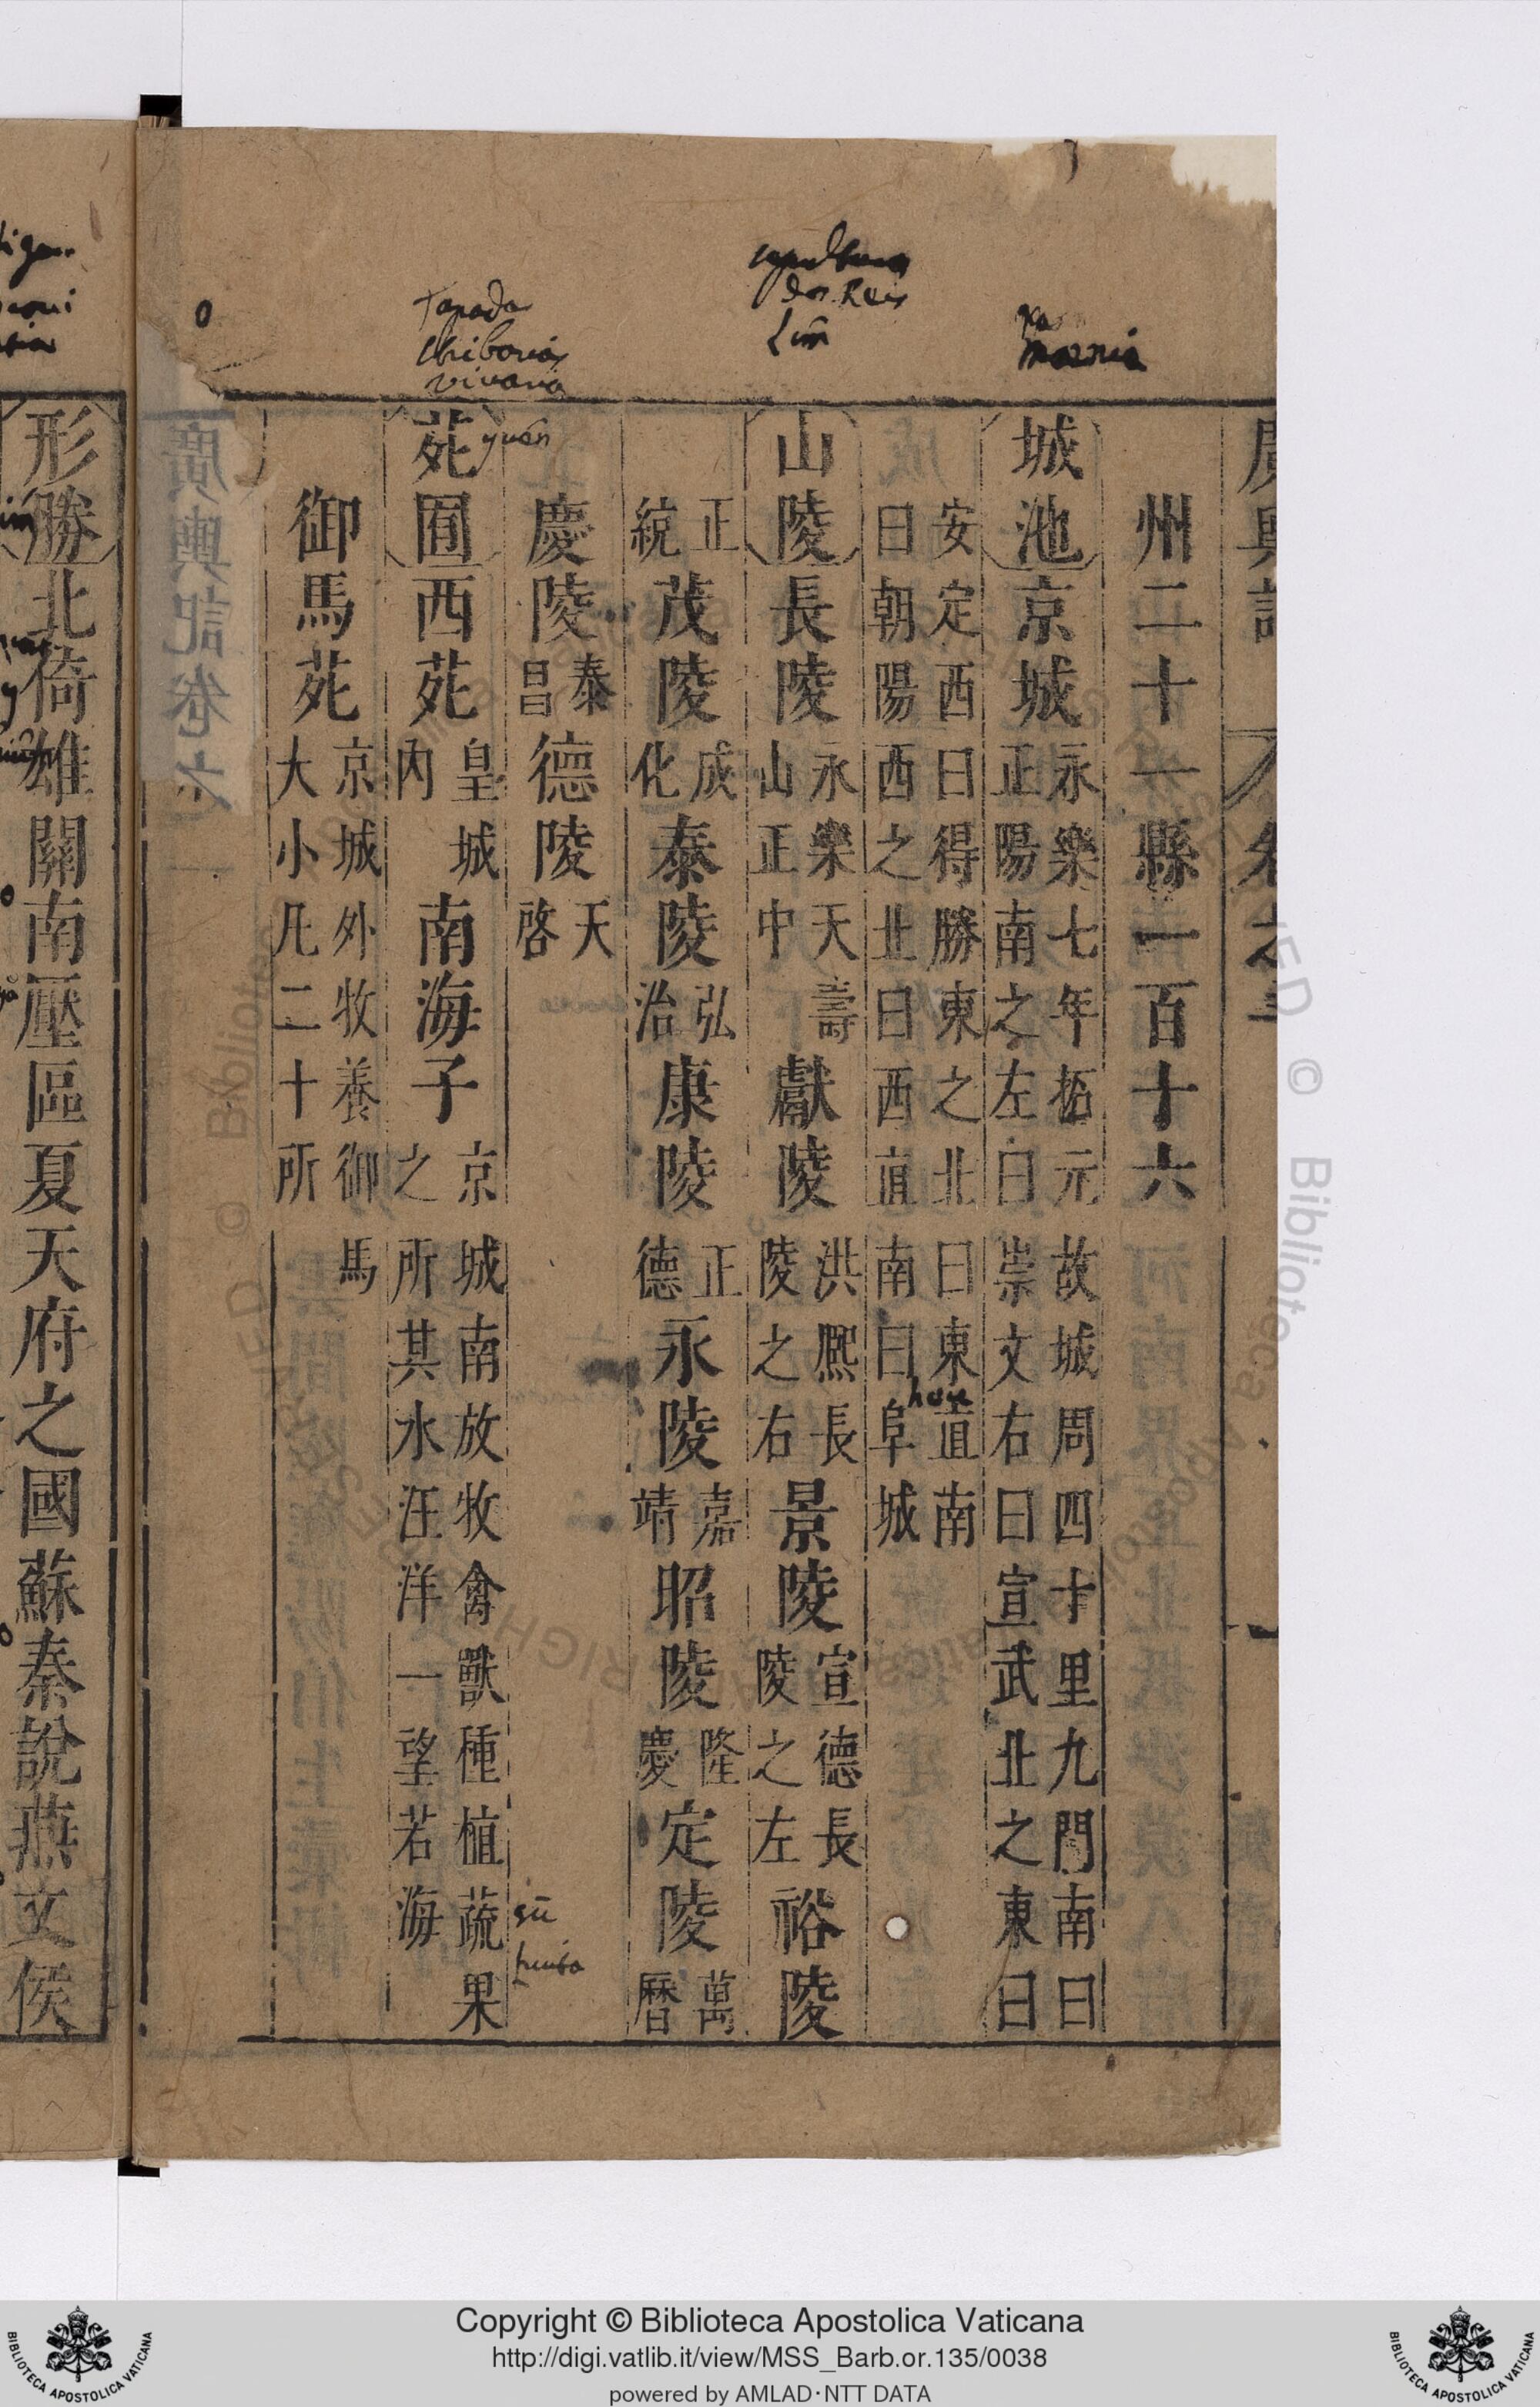 州二十一縣一百十六
城池京城永樂七年拓元故城周四十里九門南曰正陽南之左曰崇文右曰宣武北之東曰
安定西曰得勝東之北曰東直南曰朝陽西之北曰西直南曰阜城
山陵長陵永樂天壽山正中獻陵洪熈長陵之右景陵宣德長陵之左裕陵
正統茂陵成化泰陵弘治康陵正德永陵嘉靖昭陵隆慶定陵萬曆
慶陵泰昌德陵天啓
苑囿西苑皇城內南海子京城南放牧禽獸種植蔬果之所其水汪洋一望若海
御馬苑京城外牧養御馬大小凡二十所
形勝北倚雄關南壓區夏天府之國蘇秦說燕文侯
dos Reis
Tapada
vivaria
yuên
Copyright © Biblioteca Apostolica Vaticana
http://digi.vatlib.it/view/MSS_Barb.or.135/0038
powered by AMLAD·NTT DATA
BIBLIOTECA APOSTOLICA VATICANA
BIBLIOTECA APOSTOLICA VATICANA